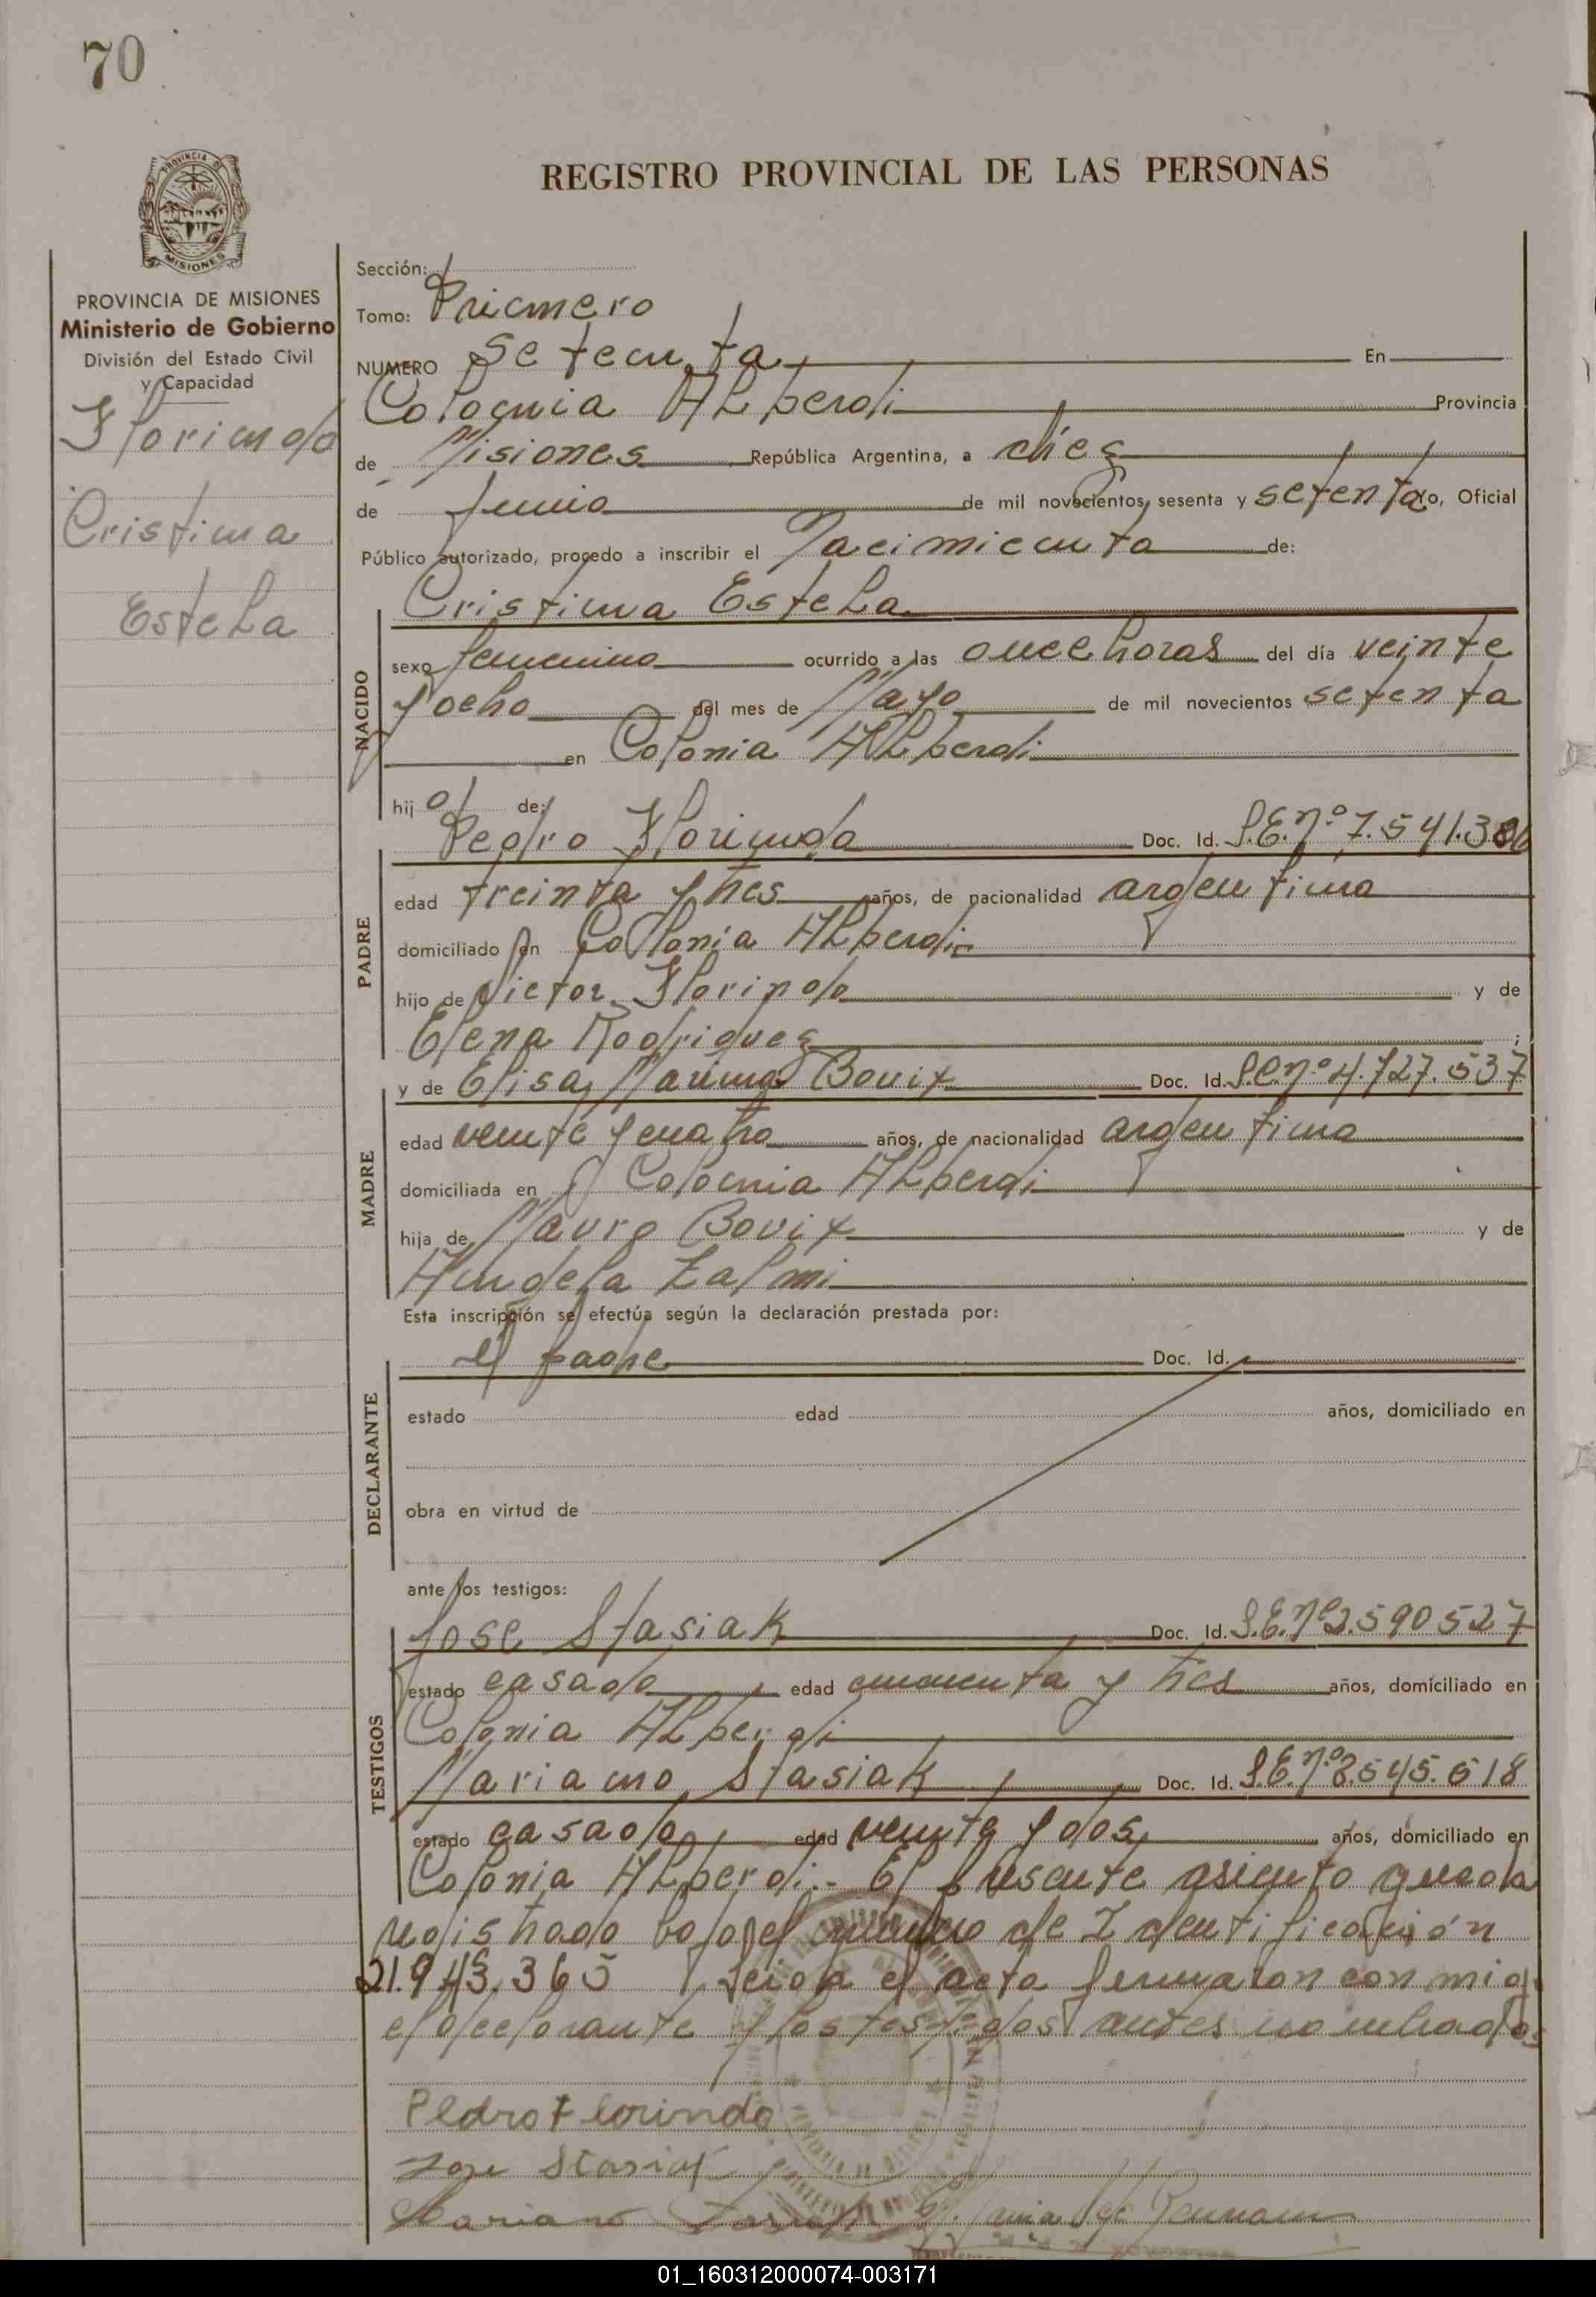 70
PROVINCIA DE
MISIONES
REGISTRO PROVINCIAL DE LAS PERSONAS
PROVINCIA DE MISIONES
Ministerio de Gobierno
División del Estado Civil
y Capacidad
Florindo
Cristina
Estela
Sección:
Tomo: Primero
NUMERO Setenta En
Colonia Alberdi Provincia
de Misiones República Argentina, a diez
de Junio de mil novecientos sesenta y setenta yo, Oficial
Público autorizado, procedo a inscribir el Nacimiento de:
Cristina Estela
NACIDO
sexo femenino ocurrido a las once horas del día veinte
y ocho del mes de Mayo de mil novecientos setenta
en Colonia Alberdi
hij a de:
Pedro Florindo Doc. Id. L.E.nº 7.541.386
PADRE
edad treinta y tres años, de nacionalidad argentina
domiciliado en Colonia Alberdi
hijo de Victor Florindo y de
Elena Rodriguez ;
y de Elisa Marina Bovix Doc. Id. L.C.nº 4.727.537
MADRE
edad veinte y cuatro años, de nacionalidad argentina
domiciliada en Colonia Alberdi
hija de Mauro Bovix y de
Angela Zalmi
Esta inscripción se efectúa según la declaración prestada por:
el padre Doc. Id.
DECLARANTE
estado edad años, domiciliado en
obra en virtud de
ante los testigos:
Jose Stasiak Doc. Id. L.E.nº 2.590527
TESTIGOS
estado casado edad cincuenta y tres años, domiciliado en
Colonia Alberdi
Mariano Stasiak Doc. Id. L.E.nº 8.545.618
estado casado edad veinte y dos años, domiciliado en
Colonia Alberdi.- El presente asiento queda
registrado bajo el número de Identificación
21.943.365 Leida el acta firmaron conmigo
el declarante y los testigos antes nombrados
Pedro Florindo
Jose Stasiak
Mariano Stasiak
01_160312000074-003171